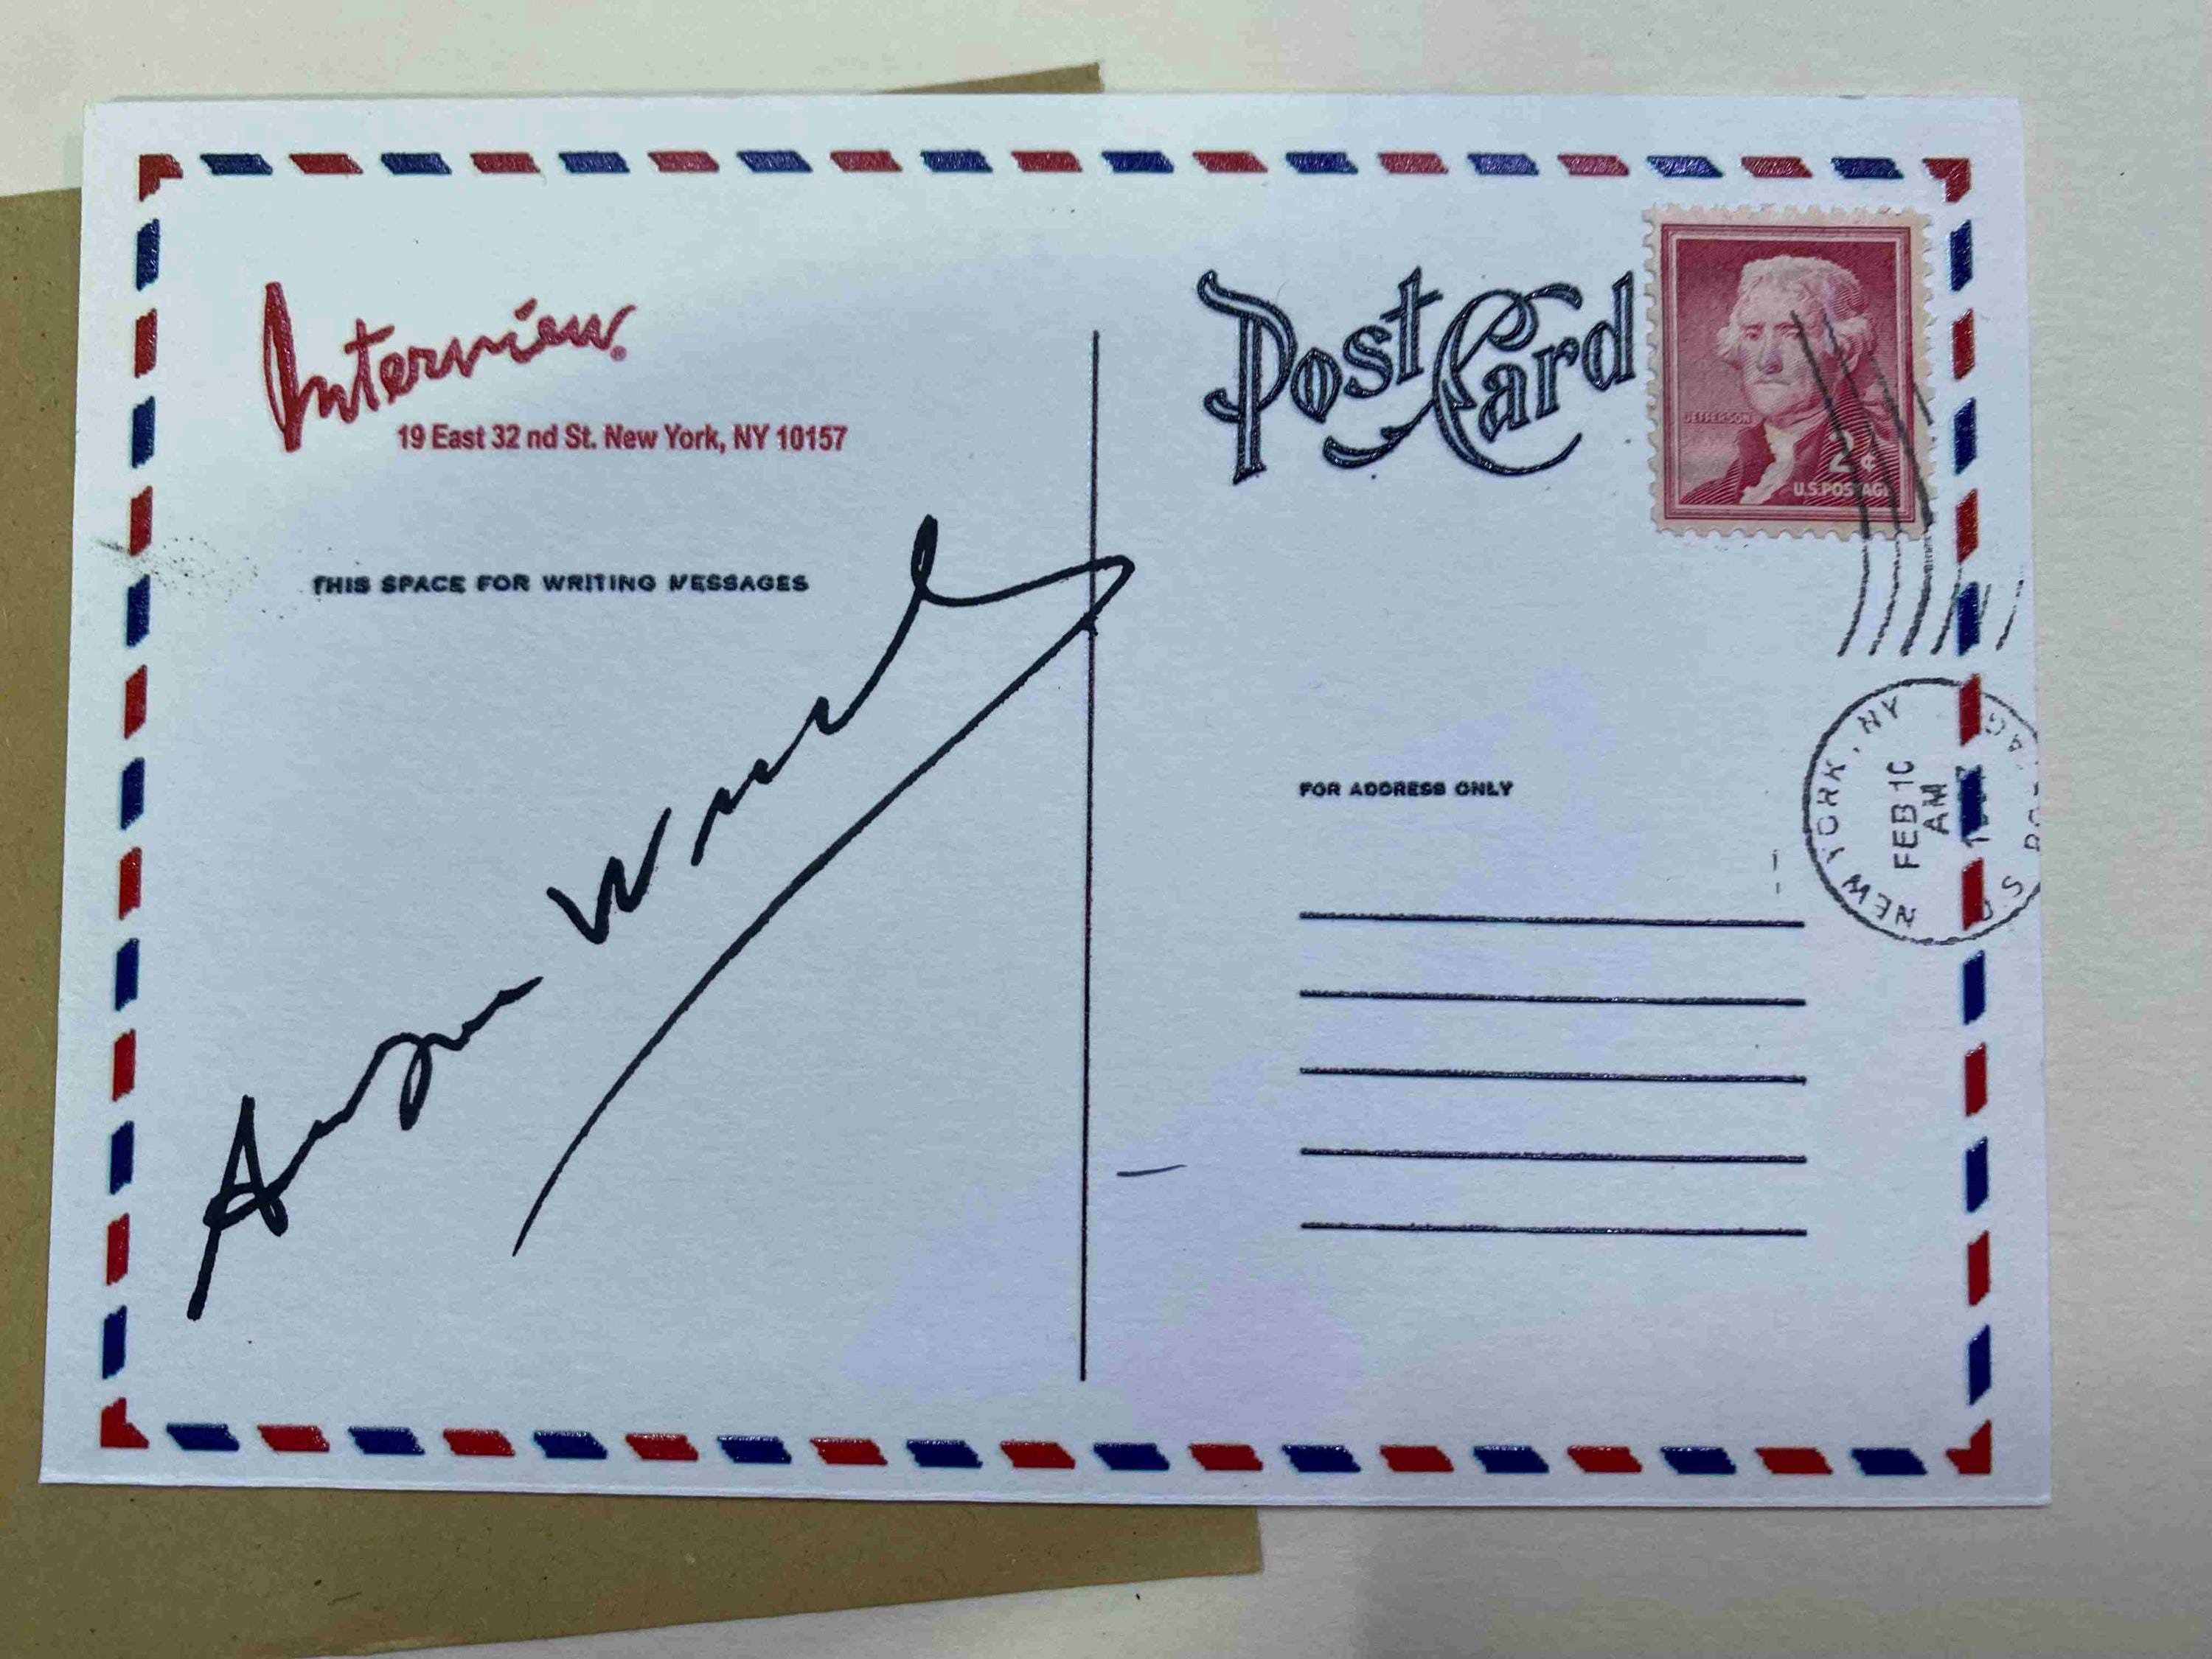 Interview®
19 East 32 nd St. New York, NY 10157
THIS SPACE FOR WRITING MESSAGES
Post Card
JEFFERSON
2¢
U.S. POSTAGE
NEW YORK, NY
FEB 10
AM
FOR ADDRESS ONLY